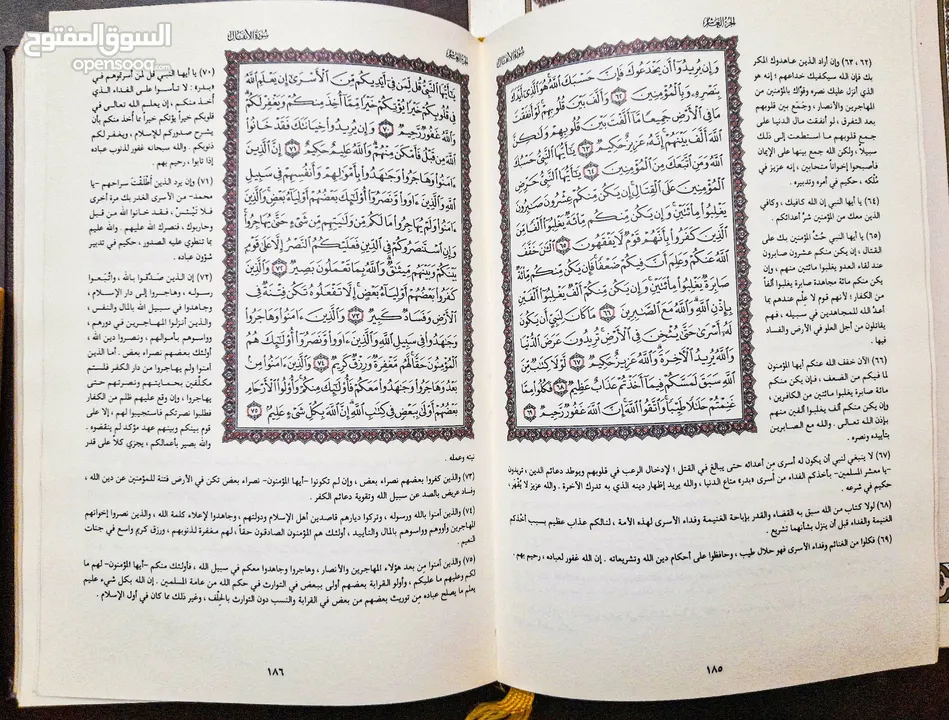 السوق المفتوح
opensooq.com
الجزء العاشر
سورة الأنفال
وَإِن يُرِيدُوٓا۟ أَن يَخْدَعُوكَ فَإِنَّ حَسْبَكَ ٱللَّهُ هُوَ ٱلَّذِىٓ أَيَّدَكَ
بِنَصْرِهِۦ وَبِٱلْمُؤْمِنِينَ ٦٢ وَأَلَّفَ بَيْنَ قُلُوبِهِمْ لَوْ أَنفَقْتَ
مَا فِى ٱلْأَرْضِ جَمِيعًا مَّآ أَلَّفْتَ بَيْنَ قُلُوبِهِمْ وَلَٰكِنَّ
ٱللَّهَ أَلَّفَ بَيْنَهُمْ إِنَّهُۥ عَزِيزٌ حَكِيمٌ ٦٣ يَٰٓأَيُّهَا ٱلنَّبِىُّ حَسْبُكَ
ٱللَّهُ وَمَنِ ٱتَّبَعَكَ مِنَ ٱلْمُؤْمِنِينَ ٦٤ يَٰٓأَيُّهَا ٱلنَّبِىُّ حَرِّضِ
ٱلْمُؤْمِنِينَ عَلَى ٱلْقِتَالِ إِن يَكُن مِّنكُمْ عِشْرُونَ صَٰبِرُونَ
يَغْلِبُوا۟ مِا۟ئَتَيْنِ وَإِن يَكُن مِّنكُم مِّا۟ئَةٌ يَغْلِبُوٓا۟ أَلْفًا مِّنَ
ٱلَّذِينَ كَفَرُوا۟ بِأَنَّهُمْ قَوْمٌ لَّا يَفْقَهُونَ ٦٥ ٱلْـَٰٔنَ خَفَّفَ
ٱللَّهُ عَنكُمْ وَعَلِمَ أَنَّ فِيكُمْ ضَعْفًا فَإِن يَكُن مِّنكُم مِّا۟ئَةٌ
صَابِرَةٌ يَغْلِبُوا۟ مِا۟ئَتَيْنِ وَإِن يَكُن مِّنكُمْ أَلْفٌ يَغْلِبُوٓا۟ أَلْفَيْنِ
بِإِذْنِ ٱللَّهِ وَٱللَّهُ مَعَ ٱلصَّٰبِرِينَ ٦٦ مَا كَانَ لِنَبِىٍّ أَن يَكُونَ
لَهُۥٓ أَسْرَىٰ حَتَّىٰ يُثْخِنَ فِى ٱلْأَرْضِ تُرِيدُونَ عَرَضَ ٱلدُّنْيَا
وَٱللَّهُ يُرِيدُ ٱلْءَاخِرَةَ وَٱللَّهُ عَزِيزٌ حَكِيمٌ ٦٧ لَّوْلَا كِتَٰبٌ مِّنَ
ٱللَّهِ سَبَقَ لَمَسَّكُمْ فِيمَآ أَخَذْتُمْ عَذَابٌ عَظِيمٌ ٦٨ فَكُلُوا۟ مِمَّا
غَنِمْتُمْ حَلَٰلًا طَيِّبًا وَٱتَّقُوا۟ ٱللَّهَ إِنَّ ٱللَّهَ غَفُورٌ رَّحِيمٌ ٦٩
(٦٢، ٦٣) وإن أراد الذين عاهدوك المكر
بك فإن الله سيكفيك خداعهم؛ إنه هو
الذي أنزل عليك نصره وقوَّاك بالمؤمنين من
المهاجرين والأنصار، وجمَع بين قلوبهم
بعد التفرق، لو أنفقت مال الدنيا على
جمع قلوبهم ما استطعت إلى ذلك
سبيلاً، ولكن الله جمع بينها على الإيمان
فأصبحوا إخواناً متحابين، إنه عزيز في
مُلكه، حكيم في أمره وتدبيره.
(٦٤) يا أيها النبي إن الله كافيك، وكافي
الذين معك من المؤمنين شرَّ أعدائكم.
(٦٥) يا أيها النبي حُثَّ المؤمنين بك على
القتال، إن يكن منكم عشرون صابرون
عند لقاء العدو يغلبوا مائتين منهم، وإن
يكن منكم مائة مجاهدة صابرة يغلبوا ألفاً
من الكفار؛ لأنهم قوم لا عِلْم عندهم بما
أعدَّ الله للمجاهدين في سبيله، فهم
يقاتلون من أجل العلو في الأرض والفساد
فيها.
(٦٦) الآن خفف الله عنكم أيها المؤمنون
لما فيكم من الضعف، فإن يكن منكم
مائة صابرة يغلبوا مائتين من الكافرين،
وإن يكن منكم ألف يغلبوا ألفين منهم
بإذن الله تعالى. والله مع الصابرين
بتأييده ونصره.
(٦٧) لا ينبغي لنبي أن يكون له أسرى من أعدائه حتى يبالغ في القتل؛ لإدخال الرعب في قلوبهم ويوطد دعائم الدين، تريدون
-يا معشر المسلمين- بأخذكم الفداء من أسرى «بدر» متاع الدنيا، والله يريد إظهار دينه الذي به تدرك الآخرة. والله عزيز لا يُقْهَر،
حكيم في شرعه.
(٦٨) لولا كتاب من الله سبق به القضاء والقدر بإباحة الغنيمة وفداء الأسرى لهذه الأمة، لنالكم عذاب عظيم بسبب أخْذكم
الغنيمة والفداء قبل أن ينزل بشأنهما تشريع.
(٦٩) فكلوا من الغنائم وفداء الأسرى فهو حلال طيب، وحافظوا على أحكام دين الله وتشريعاته. إن الله غفور لعباده، رحيم بهم.
١٨٥
الجزء العاشر
سورة الأنفال
يَٰٓأَيُّهَا ٱلنَّبِىُّ قُل لِّمَن فِىٓ أَيْدِيكُم مِّنَ ٱلْأَسْرَىٰٓ إِن يَعْلَمِ ٱللَّهُ
فِى قُلُوبِكُمْ خَيْرًا يُؤْتِكُمْ خَيْرًا مِّمَّآ أُخِذَ مِنكُمْ وَيَغْفِرْ لَكُمْ
وَٱللَّهُ غَفُورٌ رَّحِيمٌ ٧٠ وَإِن يُرِيدُوا۟ خِيَانَتَكَ فَقَدْ خَانُوا۟
ٱللَّهَ مِن قَبْلُ فَأَمْكَنَ مِنْهُمْ وَٱللَّهُ عَلِيمٌ حَكِيمٌ ٧١ إِنَّ ٱلَّذِينَ
ءَامَنُوا۟ وَهَاجَرُوا۟ وَجَٰهَدُوا۟ بِأَمْوَٰلِهِمْ وَأَنفُسِهِمْ فِى سَبِيلِ
ٱللَّهِ وَٱلَّذِينَ ءَاوَوا۟ وَّنَصَرُوٓا۟ أُو۟لَٰٓئِكَ بَعْضُهُمْ أَوْلِيَآءُ بَعْضٍ وَٱلَّذِينَ
ءَامَنُوا۟ وَلَمْ يُهَاجِرُوا۟ مَا لَكُم مِّن وَلَٰيَتِهِم مِّن شَىْءٍ حَتَّىٰ يُهَاجِرُوا۟
وَإِنِ ٱسْتَنصَرُوكُمْ فِى ٱلدِّينِ فَعَلَيْكُمُ ٱلنَّصْرُ إِلَّا عَلَىٰ قَوْمٍ
بَيْنَكُمْ وَبَيْنَهُم مِّيثَٰقٌ وَٱللَّهُ بِمَا تَعْمَلُونَ بَصِيرٌ ٧٢ وَٱلَّذِينَ
كَفَرُوا۟ بَعْضُهُمْ أَوْلِيَآءُ بَعْضٍ إِلَّا تَفْعَلُوهُ تَكُن فِتْنَةٌ فِى
ٱلْأَرْضِ وَفَسَادٌ كَبِيرٌ ٧٣ وَٱلَّذِينَ ءَامَنُوا۟ وَهَاجَرُوا۟
وَجَٰهَدُوا۟ فِى سَبِيلِ ٱللَّهِ وَٱلَّذِينَ ءَاوَوا۟ وَّنَصَرُوٓا۟ أُو۟لَٰٓئِكَ هُمُ
ٱلْمُؤْمِنُونَ حَقًّا لَّهُم مَّغْفِرَةٌ وَرِزْقٌ كَرِيمٌ ٧٤ وَٱلَّذِينَ ءَامَنُوا۟ مِنۢ
بَعْدُ وَهَاجَرُوا۟ وَجَٰهَدُوا۟ مَعَكُمْ فَأُو۟لَٰٓئِكَ مِنكُمْ وَأُو۟لُوا۟ ٱلْأَرْحَامِ
بَعْضُهُمْ أَوْلَىٰ بِبَعْضٍ فِى كِتَٰبِ ٱللَّهِ إِنَّ ٱللَّهَ بِكُلِّ شَىْءٍ عَلِيمٌۢ ٧٥
(٧٠) يا أيها النبي قل لمن أسرتموهم في
«بدر»: لا تأسوا على الفداء الذي
أخذ منكم، إن يعلم الله تعالى في
قلوبكم خيراً يؤتكم خيراً مما أخذ منكم بأن
يشرح صدوركم للإسلام، ويغفر لكم
ذنوبكم. والله سبحانه غفور لذنوب عباده
إذا تابوا، رحيم بهم.
(٧١) وإن يرد الذين أطْلَقْتَ سراحهم -يا
محمد- من الأسرى الغدر بك مرة أخرى
فلا تَيْئسْ، فقد خانوا الله من قبل
وحاربوك، فنصرك الله عليهم. والله عليم
بما تنطوي عليه الصدور، حكيم في تدبير
شؤون عباده.
(٧٢) إن الذين صدَّقوا بالله، واتَّبعوا
رسوله، وهاجروا إلى دار الإسلام،
وجاهدوا في سبيل الله بالمال والنفس،
والذين أنزلوا المهاجرين في دورهم،
وواسوهم بأموالهم، ونصروا دين الله،
أولئك بعضهم نصراء بعض. أما الذين
آمنوا ولم يهاجروا من دار الكفر فلستم
مكلَّفين بحمايتهم ونصرتهم حتى
يهاجروا، وإن وقع عليهم ظلم من الكفار
فطلبوا نصرتكم فاستجيبوا لهم، إلا على
قوم بينكم وبينهم عهد مؤكد لم ينقضوه.
والله بصير بأعمالكم، يجزي كلاً على قدر
نيته وعمله.
(٧٣) والذين كفروا بعضهم نصراء بعض، وإن لم تكونوا -أيها المؤمنون- نصراء بعض تكن في الأرض فتنة للمؤمنين عن دين الله،
وفساد عريض بالصد عن سبيل الله وتقوية دعائم الكفر.
(٧٤) والذين آمنوا بالله ورسوله، وتركوا ديارهم قاصدين دار الإسلام ودولتهم، وجاهدوا لإعلاء كلمة الله، والذين نصروا إخوانهم
المهاجرين وآووهم وواسوهم بالمال والتأييد، أولئك هم المؤمنون الصادقون حقاً، لهم مغفرة لذنوبهم، ورزق كريم واسع في جنات
النعيم.
(٧٥) والذين آمنوا من بعد هؤلاء المهاجرين والأنصار، وهاجروا وجاهدوا معكم في سبيل الله، فأولئك منكم -أيها المؤمنون- لهم ما
لكم وعليهم ما عليكم، وأولو القرابة بعضهم أولى ببعض في التوارث في حكم الله من عامة المسلمين. إن الله بكل شيء عليم
يعلم ما يصلح عباده من توريث بعضهم من بعض في القرابة والنسب دون التوارث بالحِلْف، وغير ذلك مما كان في أول الإسلام.
١٨٦